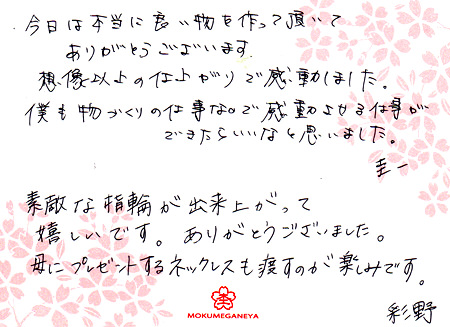 今日は本当に良い物を作って頂いて
ありがとうございます。
想像以上の仕上がりで感動しました。
僕も物づくりの仕事なので感動させる仕事が
できたらいいなと思いました。
圭一
素敵な指輪が出来上がって
嬉しいです。ありがとうございました。
母にプレゼントするネックレスも渡すのが楽しみです。
彩野
MOKUMEGANEYA